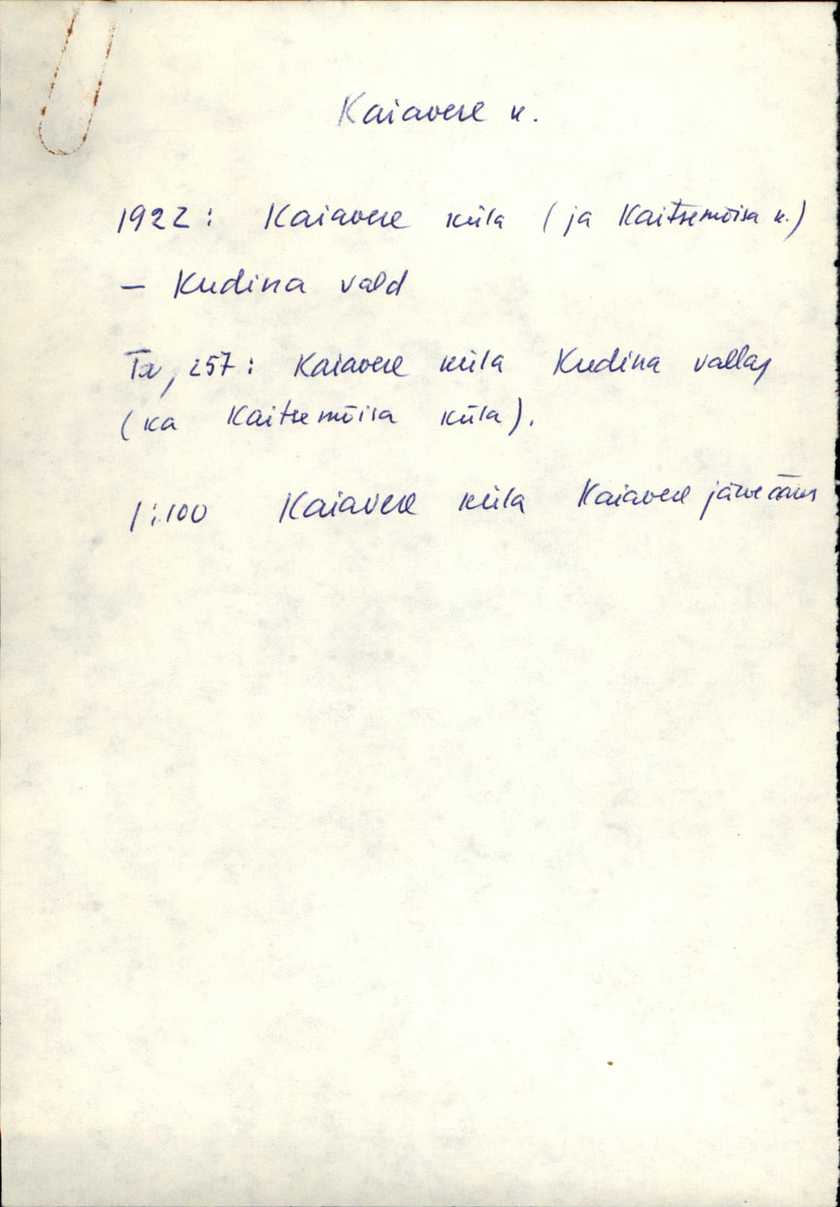 Kaiavere k.
1922: Kaiavere küla (ja Kaitsemõisa k.)
– Kudina vald
Ta, 257: Kaiavere küla Kudina vallas
(ka Kaitsemõisa küla).
1:100 Kaiavere küla Kaiavere järve ääres